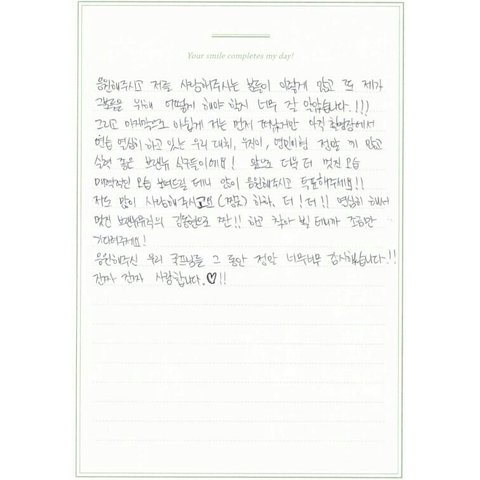 Your smile completes my day!
응원해주시고 저를 사랑해주시는 분들이 이렇게 많고 또 제가
그분들을 위해 어떻게 해야 할지 너무 잘 알았습니다.!!!
그리고 마지막으로 아쉽게 저는 먼저 떠났지만 아직 촬영장에서
연습 열심히 하고 있는 우리 대휘, 우진이, 영민이형 정말 끼 많고
실력 좋은 브랜뉴 식구들이에요! 앞으로 더욱 더 멋진 모습
매력적인 모습 보여드릴 테니 많이 응원해주시고 투표해주세요!!
저도 많이 사랑해주시고요 (꾸벅) 하하. 더! 더!! 열심히 해서
멋진 브랜뉴뮤직의 김동현으로 딴!! 하고 나타날 테니까 조금만
기다려주세요!
응원해주신 우리 국프님들 그 동안 정말 너무너무 감사했습니다.!!
진짜 진짜 사랑합니다.♡!!